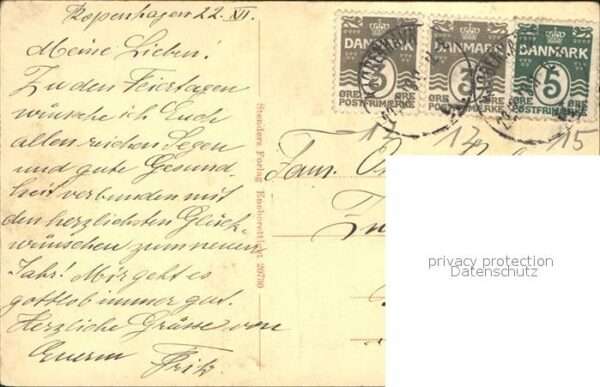 Kopenhagen 22. XII.
Meine Lieben!
Zu den Feiertagen
wünsche ich Euch
allen reichen Segen
und gute Gesund-
heit verbunden mit
den herzlichsten Glück-
wünschen zum neuen
Jahr! Mir geht es
gottlob immer gut.
Herzliche Grüsse von
Eurem Fritz.
Stenders Forlag Eneberettiget 20790
DANMARK
3
ØRE ØRE
POSTFRIMÆRKE
DANMARK
3
ØRE ØRE
POSTFRIMÆRKE
DANMARK
5
ØRE ØRE
POSTFRIMÆRKE
15
Fam.
privacy protection
Datenschutz